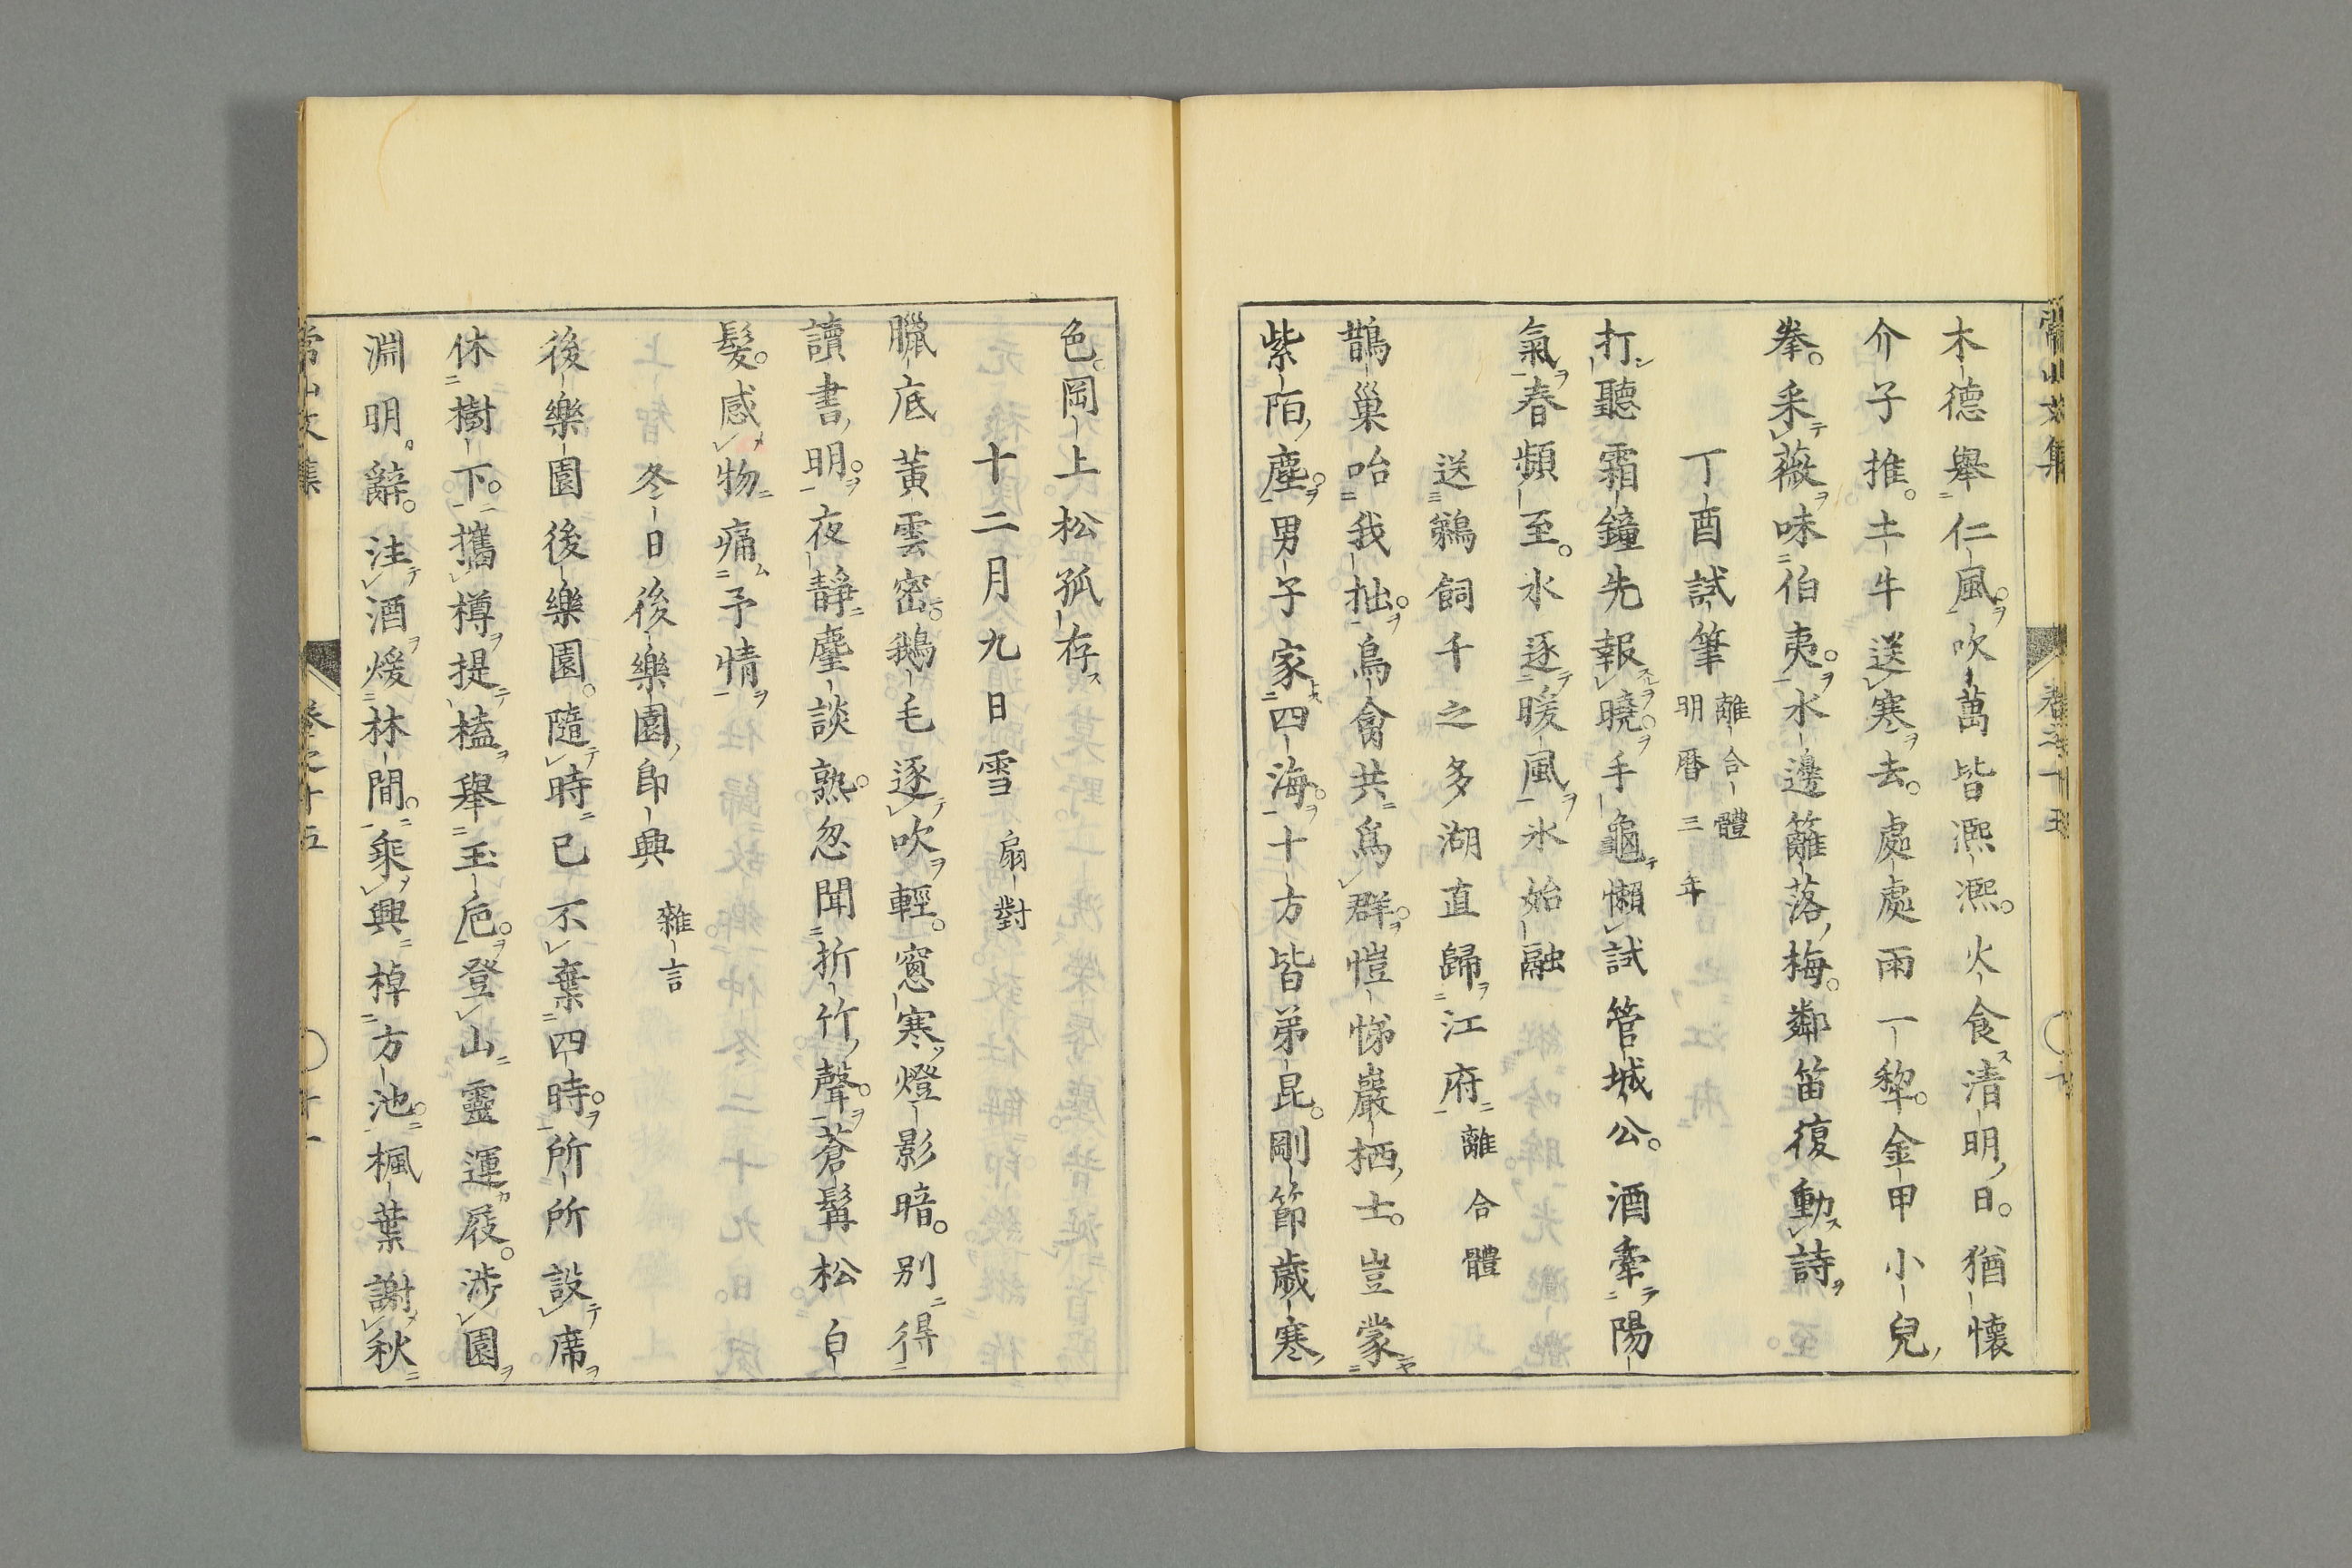 木德舉仁風吹萬皆熈熈火食清明日猶懷
介子推土牛送寒去處處雨一犂金甲小兒
拳采薇味伯夷水邊籬落梅鄰笛復動詩
丁酉試筆 離合體
明曆三年
打聽霜鐘先報曉手龜懶試管城公酒牽陽
氣春頻至水逐暖風氷始融
送鵜飼千之多湖直歸江府 離合體
鵲巢咍我拙鳥禽共爲群愷悌巖栖士豈蒙
紫陌塵男子家四海十方皆弟昆剛節歲寒
色岡上松孤存
十二月九日雪 扇對
臘底黃雲密鵝毛逐吹輕窻寒燈影暗别得
讀書明夜靜麈談熟忽聞折竹聲蒼髯松白
髮感物痛予情
冬日後樂園即興 雜言
後樂園後樂園隨時已不棄四時所所設席
休樹下攜樽提榼舉玉巵登山靈運屐涉園
淵明辭注酒煖林間乘興棹方池楓葉謝秋
常山文集 卷之十五 十一